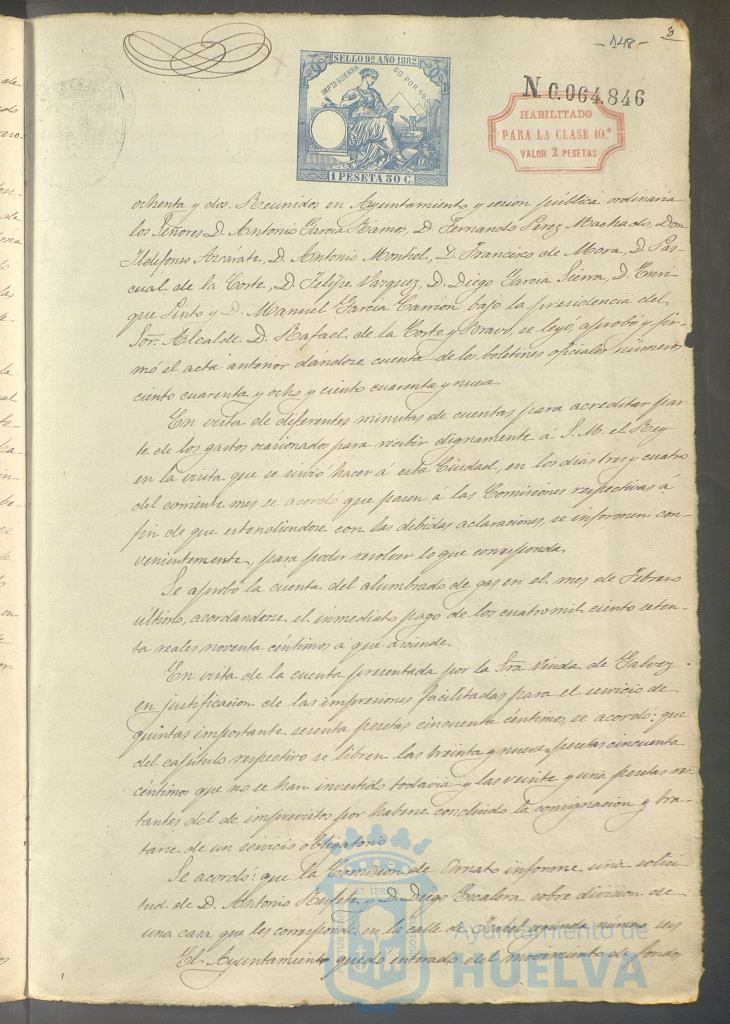 -148- 8
SELLO 9º AÑO 1882
IMPTO GUERRA 50 POR 100
1 PESETA 50 C.
N. 0.064.846
HABILITADO
PARA LA CLASE 10.ª
VALOR 2 PESETAS
ochenta y dos. Reunidos en Ayuntamiento y sesion pública ordinaria
los Señores D. Antonio Garcia Ramos, D. Fernando Perez Machado, Don
Ildefonso Azcárate, D. Antonio Montiel, D. Francisco de Mora, D. Pas-
cual de la Corte, D. Felipe Vazquez, D. Diego Garcia Sierra, D. Enri-
que Pinto y D. Manuel Garcia Carrion bajo la presidencia del
Sor. Alcalde D. Rafael de la Corte y Bravo, se leyó, aprobó y fir-
mó el acta anterior dándose cuenta de los boletines oficiales números
ciento cuarenta y ocho y ciento cuarenta y nueve.
En vista de diferentes minutas de cuentas para acreditar par-
te de los gastos ocasionados para recibir dignamente á S. M. el Rey
en la visita que se sirvió hacer á esta Ciudad, en los dias tres y cuatro
del corriente mes se acordó que pasen a las Comisiones respectivas á
fin de que estendiendose con las debidas aclaraciones, se informen con-
venientemente, para poder resolver lo que corresponda.
Se aprobó la cuenta del alumbrado de gas en el mes de Febrero
último, acordandose el inmediato pago de los cuatro mil ciento seten-
ta reales noventa céntimos á que asciende.
En vista de la cuenta presentada por la Sra Viuda de Galvez
en justificacion de las impresiones facilitadas para el servicio de
quintas importante sesenta pesetas cincuenta céntimos, se acordó: que
del capítulo respectivo se libren las treinta y nueve pesetas cincuenta
céntimos que no se han invertido todavia y las veinte y una pesetas res-
tantes del de imprevistos por haberse concluido la consignacion y tra-
tarse de un servicio obligatorio
Se acordó: que la Comision de Ornato informe una solici-
tud de D. Antonio y D. Diego Escalera sobre division de
una casa que les corresponde en la calle de Isabel segunda número seis
El Ayuntamiento quedó enterado del movimiento de fondos
Ayuntamiento de
HUELVA